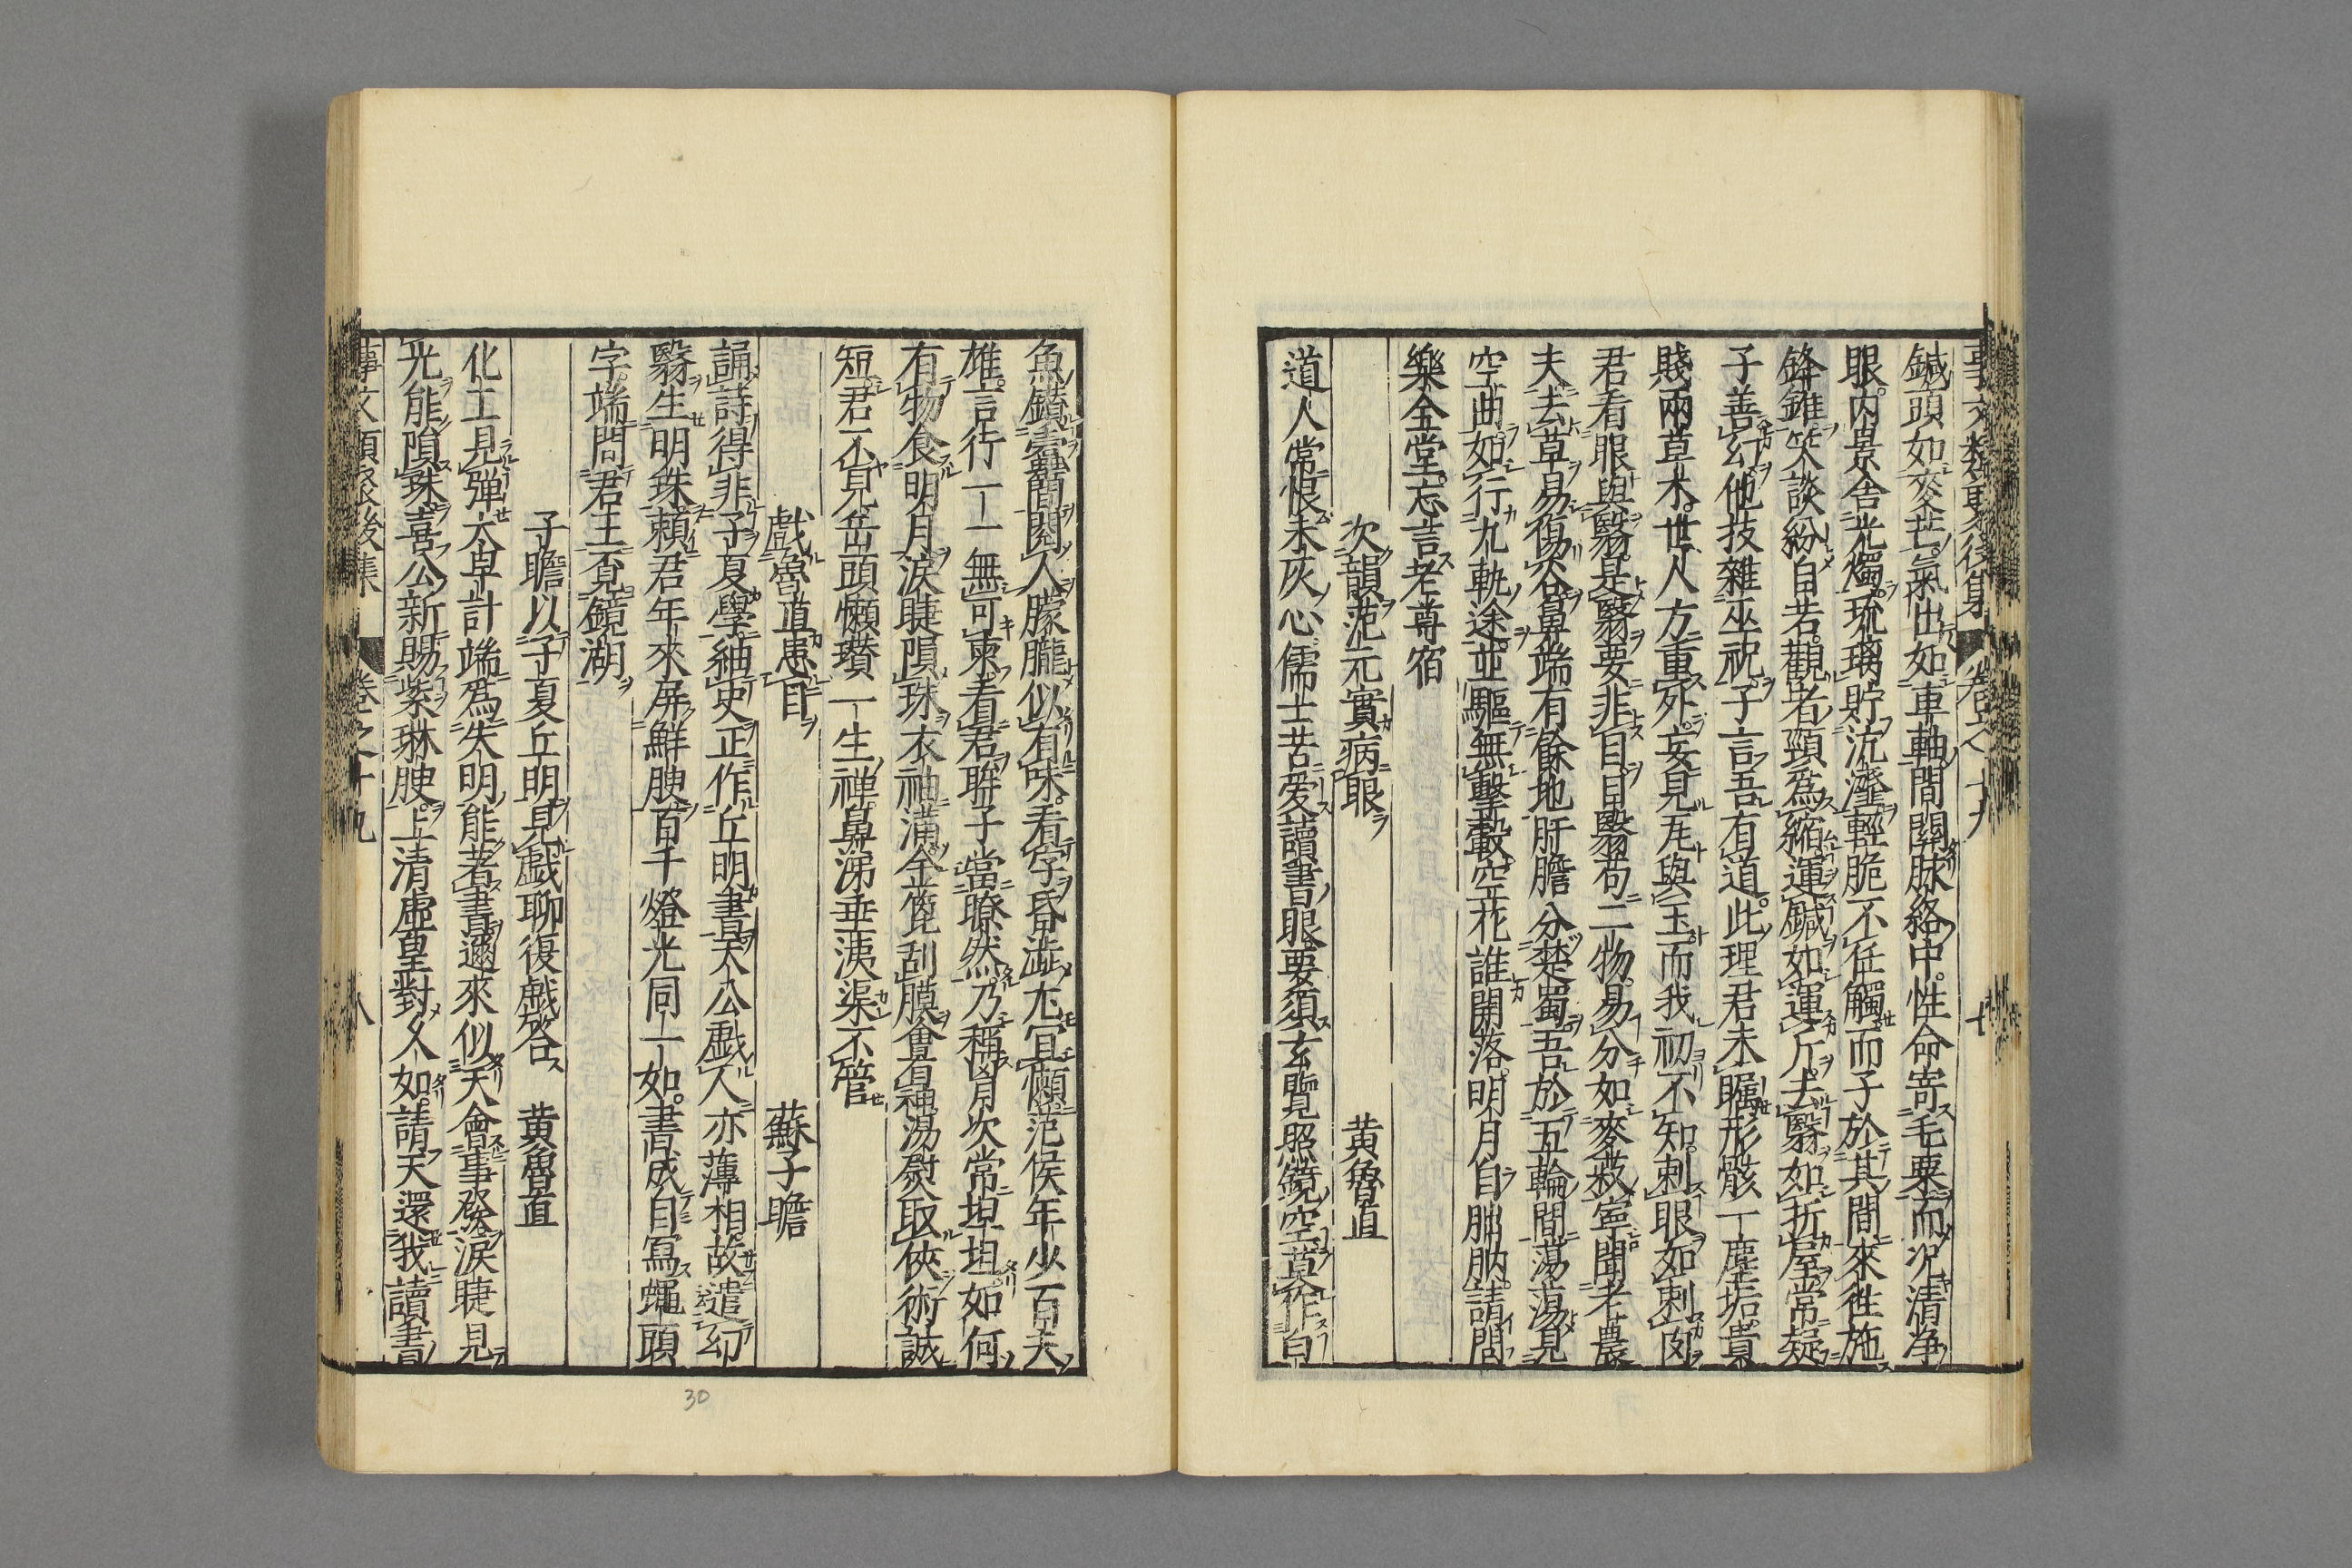 事文類聚後集 卷之十九 七
鍼頭如麥芒氣出如車軸間關脉絡中性命寄毛粟而況清净
眼内景含光燭琉璃貯沆瀣輕脆不任觸而子於其間來徃施
鋒錐笑談紛自若觀者頸爲縮運鍼如運斤去翳如折屋常疑
子善幻他技雜巫祝子言吾有道此理君未矚形骸一塵垢貴
賤兩草木世人方重外妄見瓦與玉而我初不知刺眼如刺肉
君看眼與翳是翳要非目目翳苟二物易分如麥菽寧聞老農
夫去草易傷谷鼻端有餘地肝膽分楚蜀吾於五輪間蕩蕩見
空曲如行九軌途並驅無擊轂空花誰開落明月自朏朒請問
樂全堂忘言老尊宿
次韻范元實病眼 黄魯直
道人常恨未灰心儒士苦爱讀書眼要須玄覽照鏡空莫作白
魚鑽蠹簡閱人朦朧似有味看字昏澁尤宜懶范侯年少百夫
雄言行一一無可柬看君眸子當瞭然乃稱胷次常坦坦如何
有物食明月淚睫隕珠衣袖滿金篦刮膜會有神湯熨取俠術誠
短君不見岳頭懶瓚一生禅鼻涕垂洟渠不管
戲魯直患目 蘇子瞻
誦詩得非子夏學紬史正作丘明書天公戲人亦薄相故遣幻
翳生明珠頼君年來屏鮮腴百千燈光同一如書成自冩蠅頭
字端問君王覓鏡湖
子瞻以子夏丘明見戯聊復戯答 黄魯直
化工見彈太早計端爲失明能著書邇來似天會事發淚睫見
光能隕珠喜公新賜紫琳腴上清虚皇對久如請天還我讀書
事文類聚後集 卷之十九 八
30